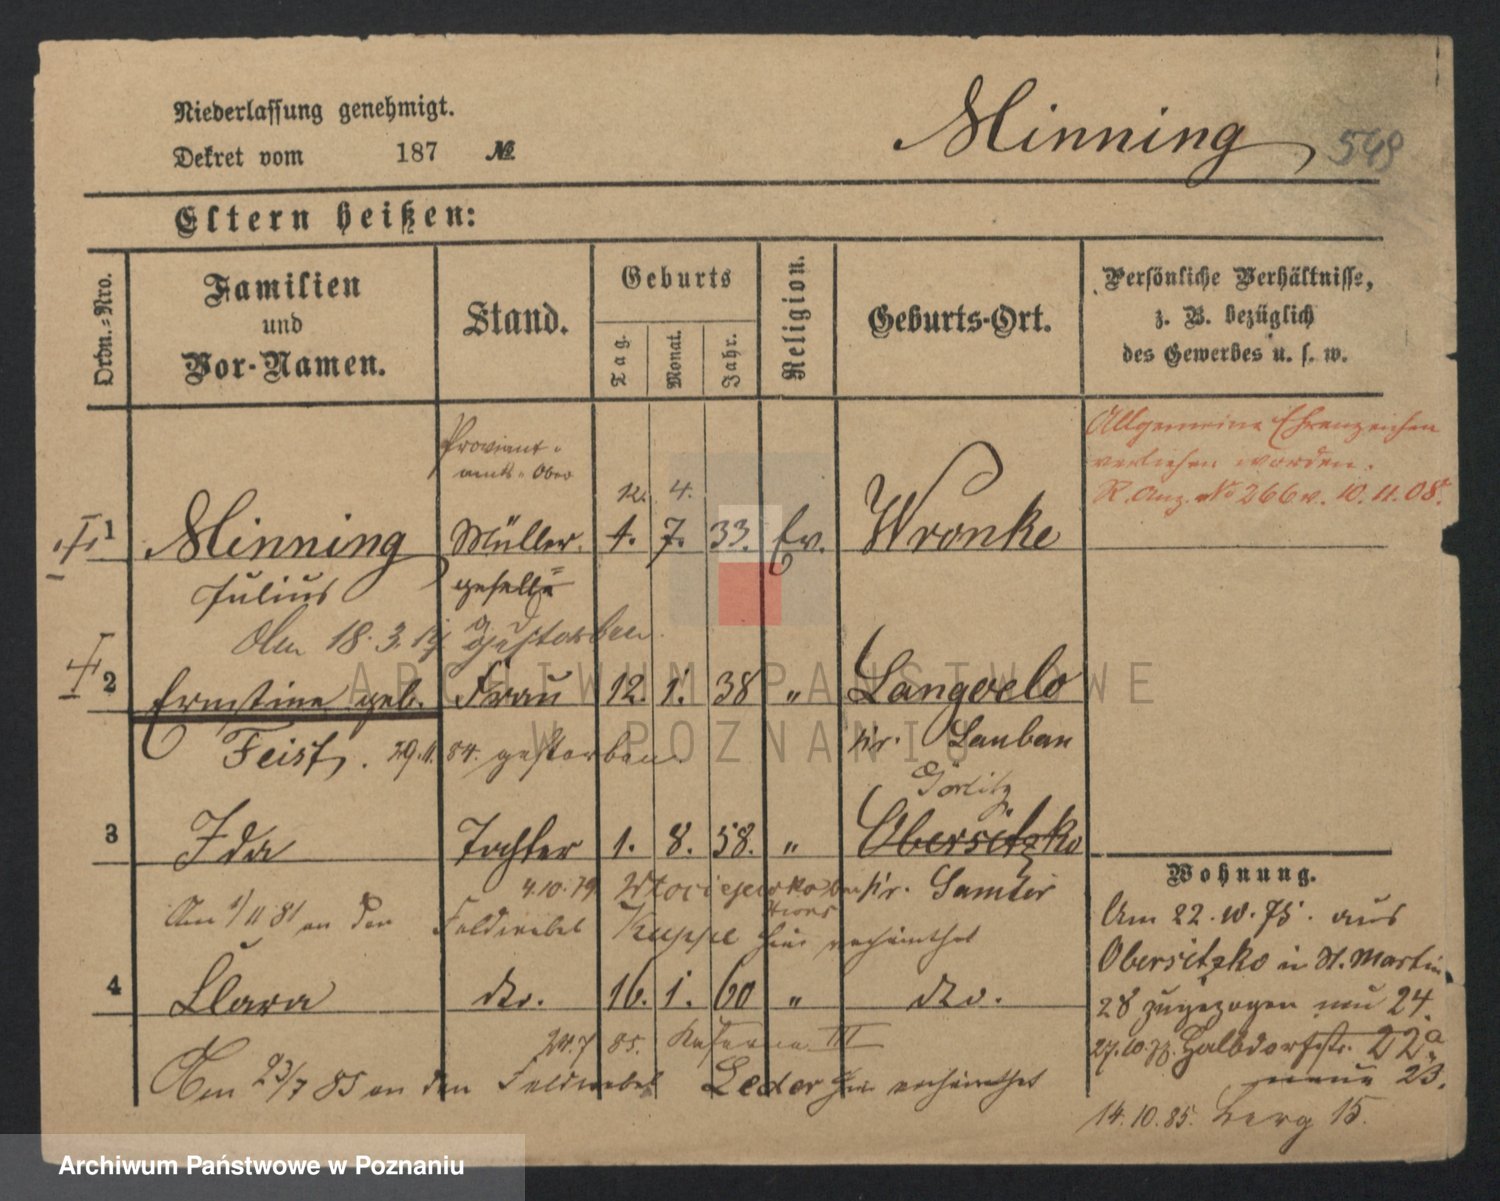 Niederlassung genehmigt.
Dekret vom 187 №
Minning 548
Eltern heißen:
Ordn.=Nro.
Familien
und
Vor-Namen.
Stand.
Geburts
Tag.
Monat.
Jahr.
Religion.
Geburts-Ort.
Persönliche Verhältnisse,
z. B. bezüglich
des Gewerbes u. s. w.
Allgemeine Ehrenzeichen
verliehen worden.
R. Anz. No 266 v. 10.11.08.
Proviant-
amts-Ober
12. 4.
1 Minning Müller. 1. 7. 33. Ev. Wronke
Julius geselle
Am 18.3.19 gestorben.
2 Ernstine geb. Frau 12. 1. 38 " Langoelo
Feist. 29.11.84. gestorben. Kr. Lauban
Görlitz
3 Ida Tochter 1. 8. 58. " Obersitzko
4.10.79 Kr. Samter
Am 1/11 81 an den Feldwebel Kuppe hier verheirathet
4 Clara do. 16. 1. 60 " do.
85. Kaserne III
Am 23/7 85 an den Feldwebel Leder hier verheirathet
Wohnung.
Am 22.10.75. aus
Obersitzko in St. Martin
28 zugezogen neu 24.
27.10.77. Halbdorfstr. 22a
neue 23.
14.10.85. Berg 15.
ARCHIWUM PAŃSTWOWE
W POZNANIU
Archiwum Państwowe w Poznaniu